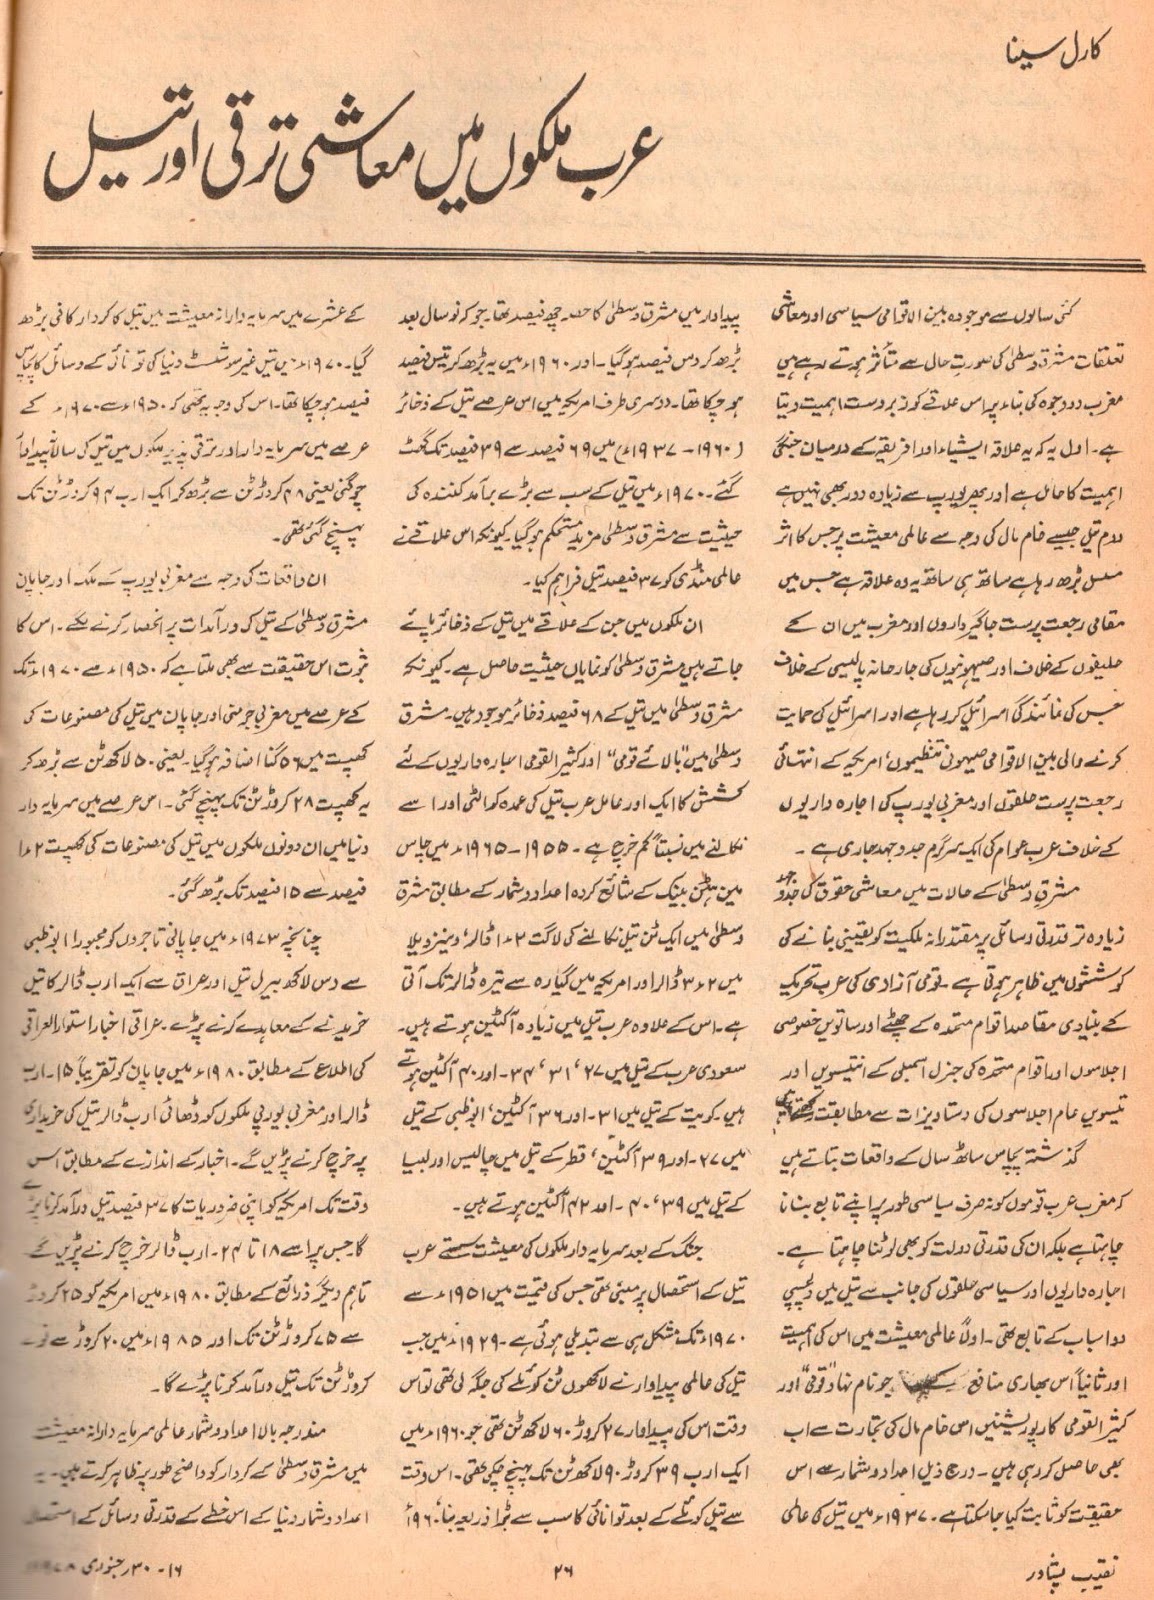 کارل سینا
عرب ملکوں میں معاشی ترقی اور تیل
کئی سالوں سے موجودہ بین الاقوامی سیاسی اور معاشی
تعلقات مشرق وسطیٰ کی صورتِ حال سے متأثر ہوتے رہے ہیں
مغرب دو وجوہ کی بناء پر اس علاقے کو زبردست اہمیت دیتا
ہے۔ اول یہ کہ یہ علاقہ ایشیاء اور افریقہ کے درمیان جنگی
اہمیت کا حامل ہے اور پھر یورپ سے زیادہ دور بھی نہیں ہے
دوم تیل جیسے خام مال کی وجہ سے عالمی معیشت پر جس کا اثر
مسلسل بڑھ رہا ہے ساتھ ہی ساتھ یہ وہ علاقہ ہے جس میں
مقامی رجعت پرست جاگیرداروں اور مغرب میں ان کے
حلیفوں کے خلاف اور صیہونیوں کی جارحانہ پالیسی کے خلاف
جس کی نمائندگی اسرائیل کر رہا ہے اور اسرائیل کی حمایت
کرنے والی بین الاقوامی صیہونی تنظیموں، امریکہ کے انتہائی
رجعت پرست حلقوں اور مغربی یورپ کی اجارہ داریوں
کے خلاف عرب عوام کی ایک سرگرم جدوجہد جاری ہے ۔
مشرقِ وسطیٰ کے حالات میں معاشی حقوق کی جدوجہد
زیادہ تر قدرتی وسائل پر مقتدرانہ ملکیت کو یقینی بنانے کی
کوششوں میں ظاہر ہوتی ہے ۔ قومی آزادی کی عرب تحریک
کے بنیادی مقاصد اقوام متحدہ کے چھٹے اور ساتویں خصوصی
اجلاسوں اور اقوام متحدہ کی جنرل اسمبلی کے انتیسویں اور
تیسویں عام اجلاسوں کی دستاویزات سے مطابقت رکھتے ہیں
گذشتہ پچاس ساٹھ سال کے واقعات بتاتے ہیں
کہ مغرب عرب قوموں کو نہ صرف سیاسی طور پر اپنے تابع بنانا
چاہتا ہے بلکہ ان کی قدرتی دولت کو بھی لوٹنا چاہتا ہے۔
اجارہ داریوں اور سیاسی حلقوں کی جانب سے تیل میں دلچسپی
دو اسباب کے تابع تھی۔ اولاً عالمی معیشت میں اس کی اہمیت
اور ثانیاً اس بھاری منافع جو نام نہاد "قومی" اور
کثیر القومی کارپوریشنیں اس خام مال کی تجارت سے اب
بھی حاصل کر رہی ہیں۔ درج ذیل اعداد و شمار سے اس
حقیقت کو ثابت کیا جا سکتا ہے۔ ۱۹۳۷ء میں تیل کی عالمی
پیداوار میں مشرق وسطیٰ کا حصہ چھ فیصد تھا، جو کہ نو سال بعد
بڑھ کر دس فیصد ہو گیا ۔ اور ۱۹۶۰ء میں یہ بڑھ کر تیس فیصد
ہو چکا تھا۔ دوسری طرف امریکہ میں اس عرصے تیل کے ذخائر
(۱۹۶۰ - ۱۹۳۷ء) میں ۶۹ فیصد سے ۳۹ فیصد تک گھٹ
گئے۔ ۱۹۷۰ء میں تیل کے سب سے بڑے برآمد کنندہ کی
حیثیت سے مشرق وسطیٰ مزید مستحکم ہو گیا۔ کیونکہ اس علاقے نے
عالمی منڈی کو ۳۷ فیصد تیل فراہم کیا۔
ان ملکوں میں جن کے علاقے میں تیل کے ذخائر پائے
جاتے ہیں مشرق وسطیٰ کو نمایاں حیثیت حاصل ہے۔ کیونکہ
مشرق وسطیٰ میں تیل کے ۶۸ فیصد ذخائر موجود ہیں۔ مشرق
وسطیٰ میں "بالائے قومی" اور کثیر القومی اجارہ داریوں کے لئے
کشش کا ایک اور عامل عرب تیل کی عمدہ کوالٹی اور اسے
نکالنے میں نسبتاً کم خرچ ہے۔ ۱۹۵۵ - ۱۹۶۵ء میں چاس
مین ہٹن بینک کے شائع کردہ اعداد و شمار کے مطابق مشرق
وسطیٰ میں ایک ٹن تیل نکالنے کی لاگت ۲ء۱ ڈالر، وینزویلا
میں ۲ء۳ ڈالر اور امریکہ میں گیارہ سے تیرہ ڈالر تک آتی
ہے۔ اس کے علاوہ عرب تیل میں زیادہ آکٹین ہوتے ہیں۔
سعودی عرب کے تیل میں ۲۷، ۳۱، ۳۴۔ اور ۴۰ آکٹین ہوتے
ہیں۔ کویت کے تیل میں ۳۱۔ اور ۳۶ آکٹین، ابوظبی کے تیل
میں ۲۷۔ اور ۳۹ آکٹین، قطر کے تیل میں چالیس اور لیبیا
کے تیل میں ۳۹، ۴۰۔ اور ۴۲ آکٹین ہوتے ہیں۔
جنگ کے بعد سرمایہ دار ملکوں کی معیشت سستے عرب
تیل کے استحصال پر مبنی تھی جس کی قیمت میں ۱۹۵۱ء سے
۱۹۷۰ء تک مشکل ہی سے تبدیلی ہوئی ہے۔ ۱۹۲۹ء میں جب
تیل کی عالمی پیداوار نے لاکھوں ٹن کوئلے کی جگہ لی تھی تو اس
وقت اس کی پیداوار ۲۷ کروڑ ۶۰ لاکھ ٹن تھی جو ۱۹۶۰ء میں
ایک ارب ۳۹ کروڑ ۹۰ لاکھ ٹن تک پہنچ چکی تھی۔ اس وقت
سے تیل کوئلے کے بعد توانائی کا سب سے بڑا ذریعہ بنا، ۱۹۶۰ء
کے عشرے میں سرمایہ دارانہ معیشت میں تیل کا کردار کافی بڑھ
گیا۔ ۱۹۷۰ء میں تیل غیر سوشلسٹ دنیا کی توانائی کے وسائل کا پچاس
فیصد ہو چکا تھا۔ اس کی وجہ یہ تھی کہ ۱۹۵۰ء سے ۱۹۷۰ء کے
عرصے میں سرمایہ دار اور ترقی پذیر ملکوں میں تیل کی سالانہ پیداوار
چوگنی یعنی ۴۸ کروڑ ٹن سے بڑھ کر ایک ارب ۹۴ کروڑ ٹن تک
پہنچ گئی تھی۔
ان واقعات کی وجہ سے مغربی یورپ کے ملک اور جاپان
مشرق وسطیٰ کے تیل کی درآمدات پر انحصار کرنے لگے۔ اس کا
ثبوت اس حقیقت سے بھی ملتا ہے کہ ۱۹۵۰ء سے ۱۹۷۰ء تک
کے عرصے میں مغربی جرمنی اور جاپان میں تیل کی مصنوعات کی
کھپت میں ۵۶ گنا اضافہ ہو گیا۔ یعنی ۵۰ لاکھ ٹن سے بڑھ کر
یہ کھپت ۲۸ کروڑ ٹن تک پہنچ گئی۔ اس عرصے میں سرمایہ دار
دنیا میں ان دونوں ملکوں میں تیل کی مصنوعات کی کھپت ۲ء۱
فیصد سے ۱۵ فیصد تک بڑھ گئی۔
چنانچہ ۱۹۷۳ء میں جاپانی تاجروں کو مجبوراً ابوظبی
سے دس لاکھ بیرل تیل اور عراق سے ایک ارب ڈالر کا تیل
خریدنے کے معاہدے کرنے پڑے۔ عراقی اخبار استوار العراقی
کی اطلاع کے مطابق ۱۹۸۰ء میں جاپان کو تقریباً ۱۵۔ ارب
ڈالر اور مغربی یورپی ملکوں کو ڈھائی ارب ڈالر تیل کی خریداری
پر خرچ کرنے پڑیں گے۔ اخبار کے اندازے کے مطابق اس
وقت تک امریکہ کو اپنی ضروریات کا ۳۷ فیصد تیل درآمد کرنا پڑے
گا جس پر اسے ۱۸ تا ۲۴۔ ارب ڈالر خرچ کرنے پڑیں گے
تاہم دیگر ذرائع کے مطابق ۱۹۸۰ء میں امریکہ کو ۲۵ کروڑ
سے ۷۵ کروڑ ٹن تک اور ۱۹۸۵ء میں ۲۰ کروڑ سے نوے
کروڑ ٹن تک تیل درآمد کرنا پڑے گا۔
مندرجہ بالا اعداد و شمار عالمی سرمایہ دارانہ معیشت
میں مشرق وسطیٰ کے کردار کو واضح طور پر ظاہر کرتے ہیں۔ یہ
اعداد و شمار دنیا کے اس خطے کے قدرتی وسائل کے استحصال
نقیب پشاور
۲۶
۱۶-۳۰ جنوری ۱۹۷۸ء